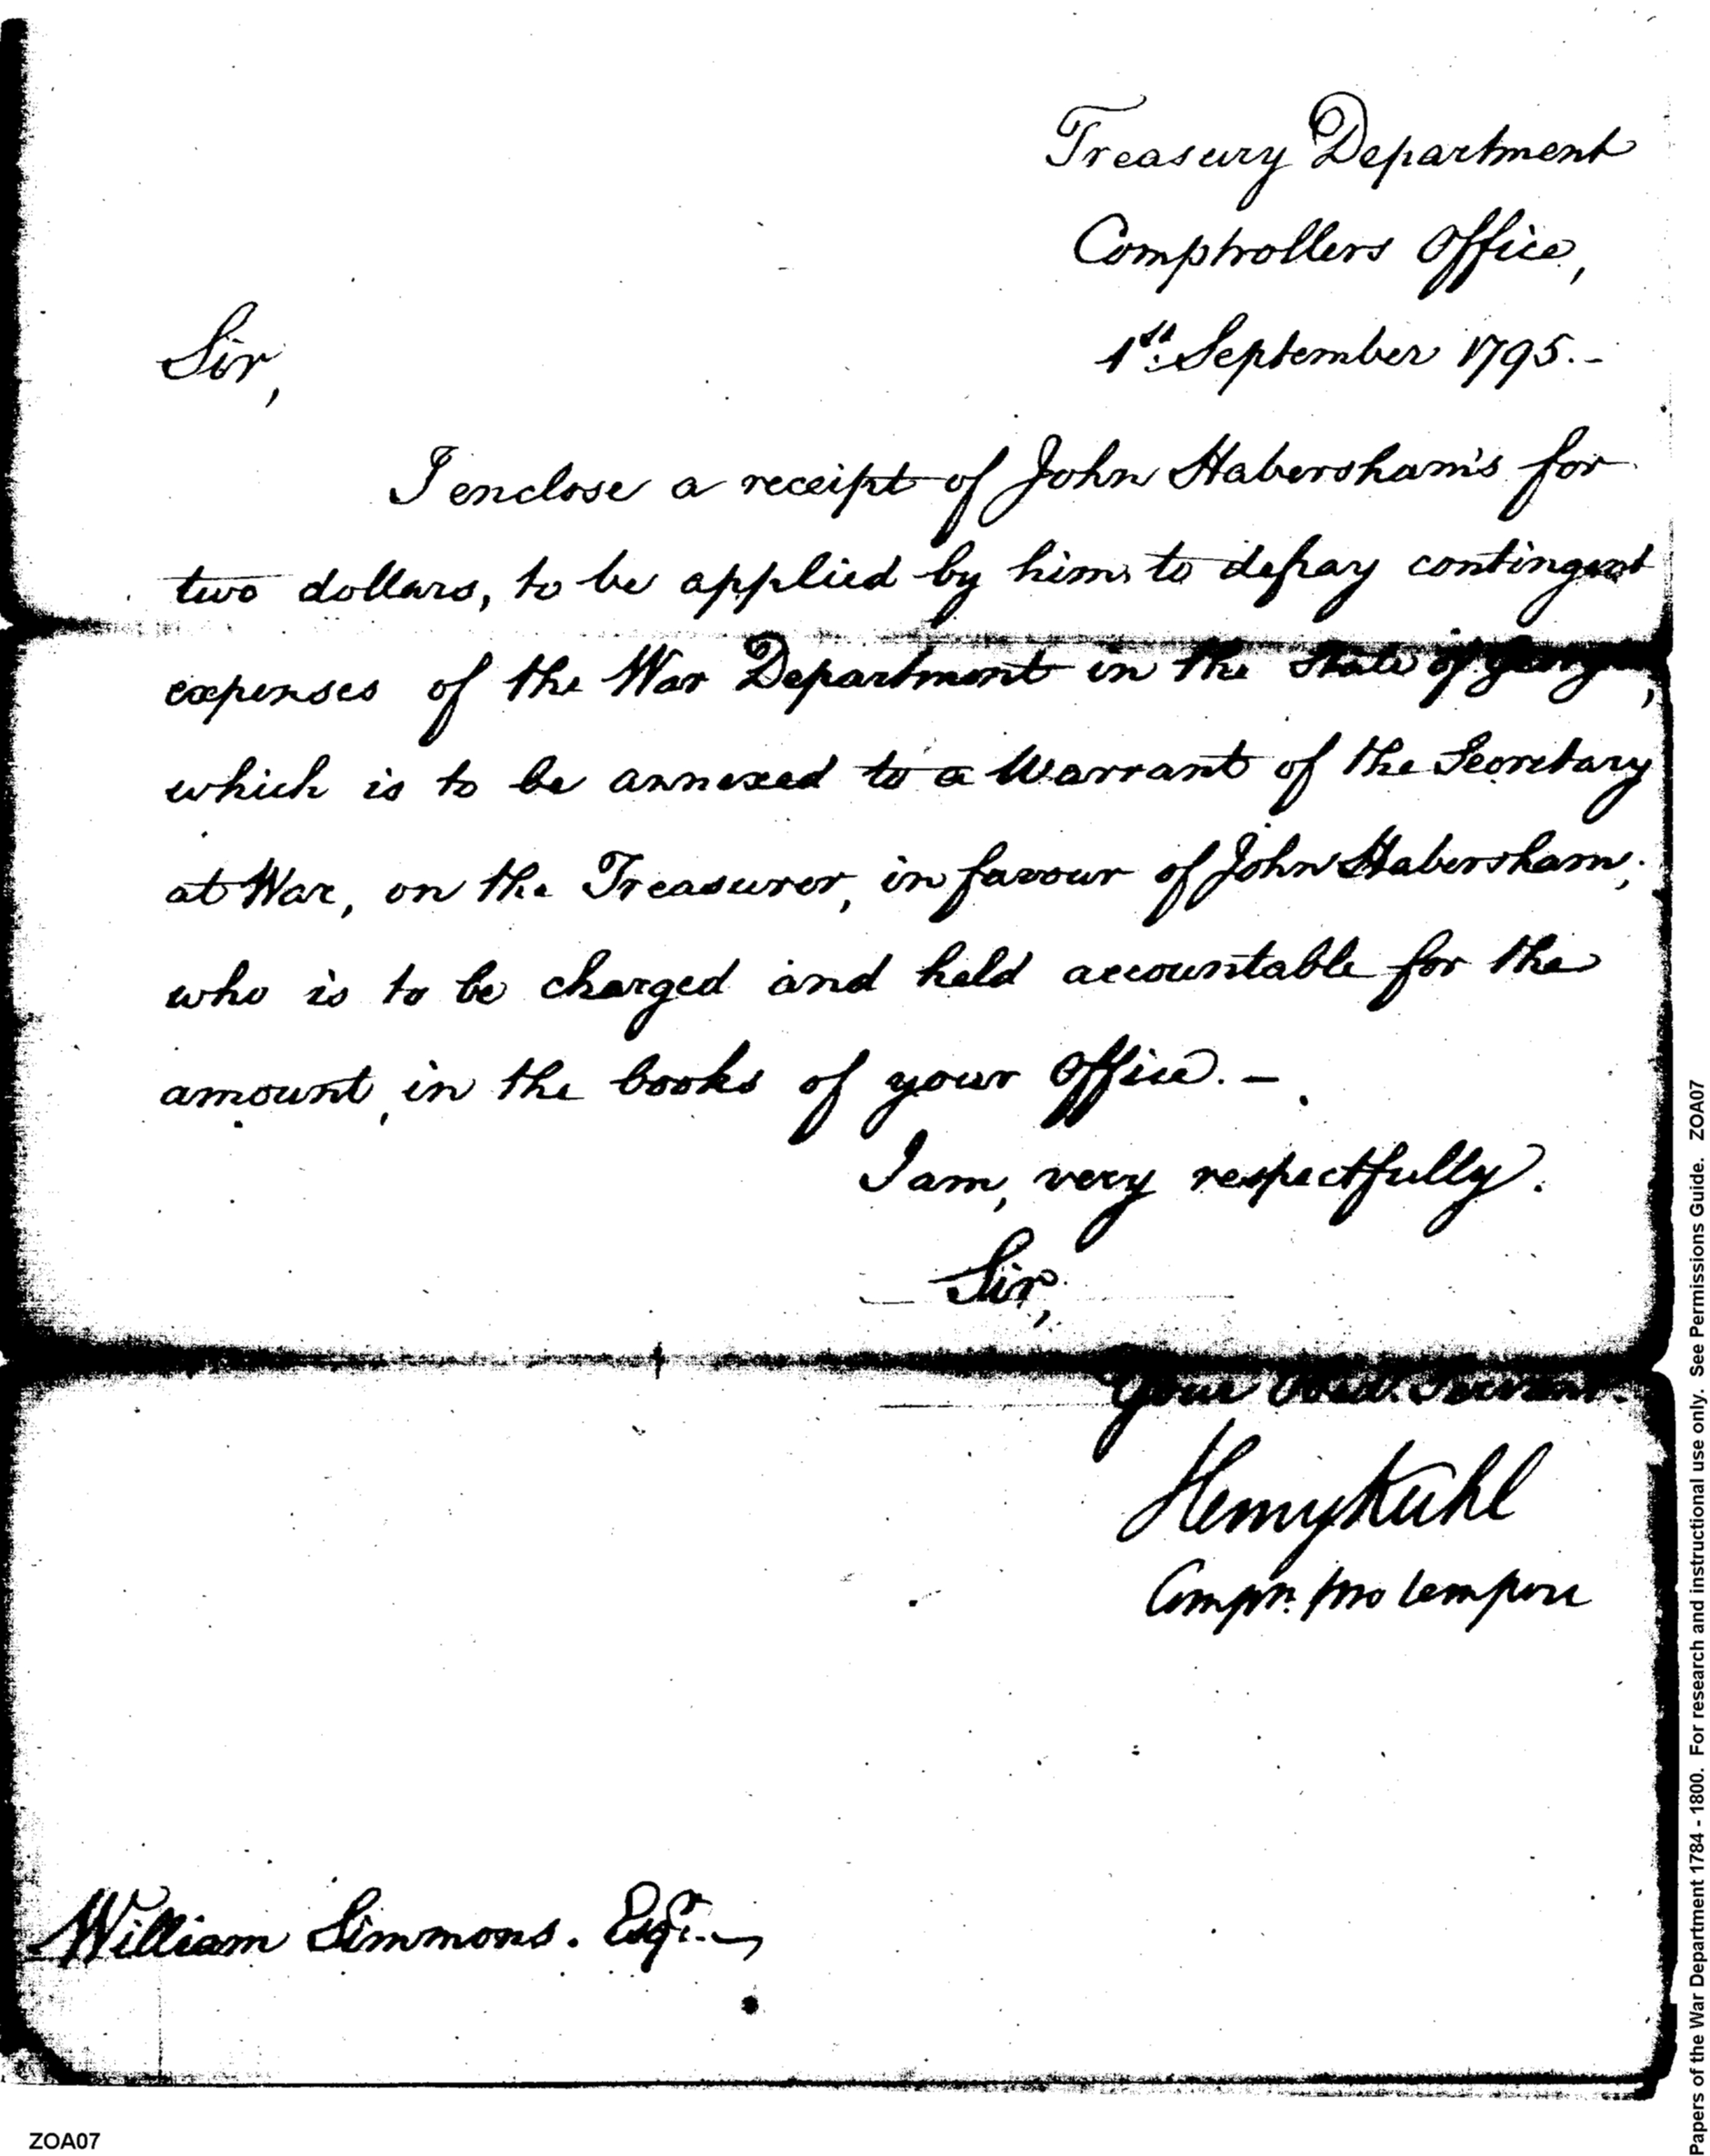 Treasury Department
Comptrollers Office,
1st. September 1795.-
Sir,
I enclose a receipt of John Habersham's for
two dollars, to be applied by him, to defray contingent
expenses of the War Department in the State of Georgia,
which is to be annexed to a Warrant of the Secretary
at War, on the Treasurer, in favour of John Habersham,
who is to be charged and held accountable for the
amount, in the books of your Office. -
I am, very respectfully.
Sir,
Your Obed. Servant.
Henry Kuhl
Compr. pro tempore
William Simmons. Esqr.
ZOA07
Papers of the War Department 1784 - 1800. For research and instructional use only. See Permissions Guide. ZOA07